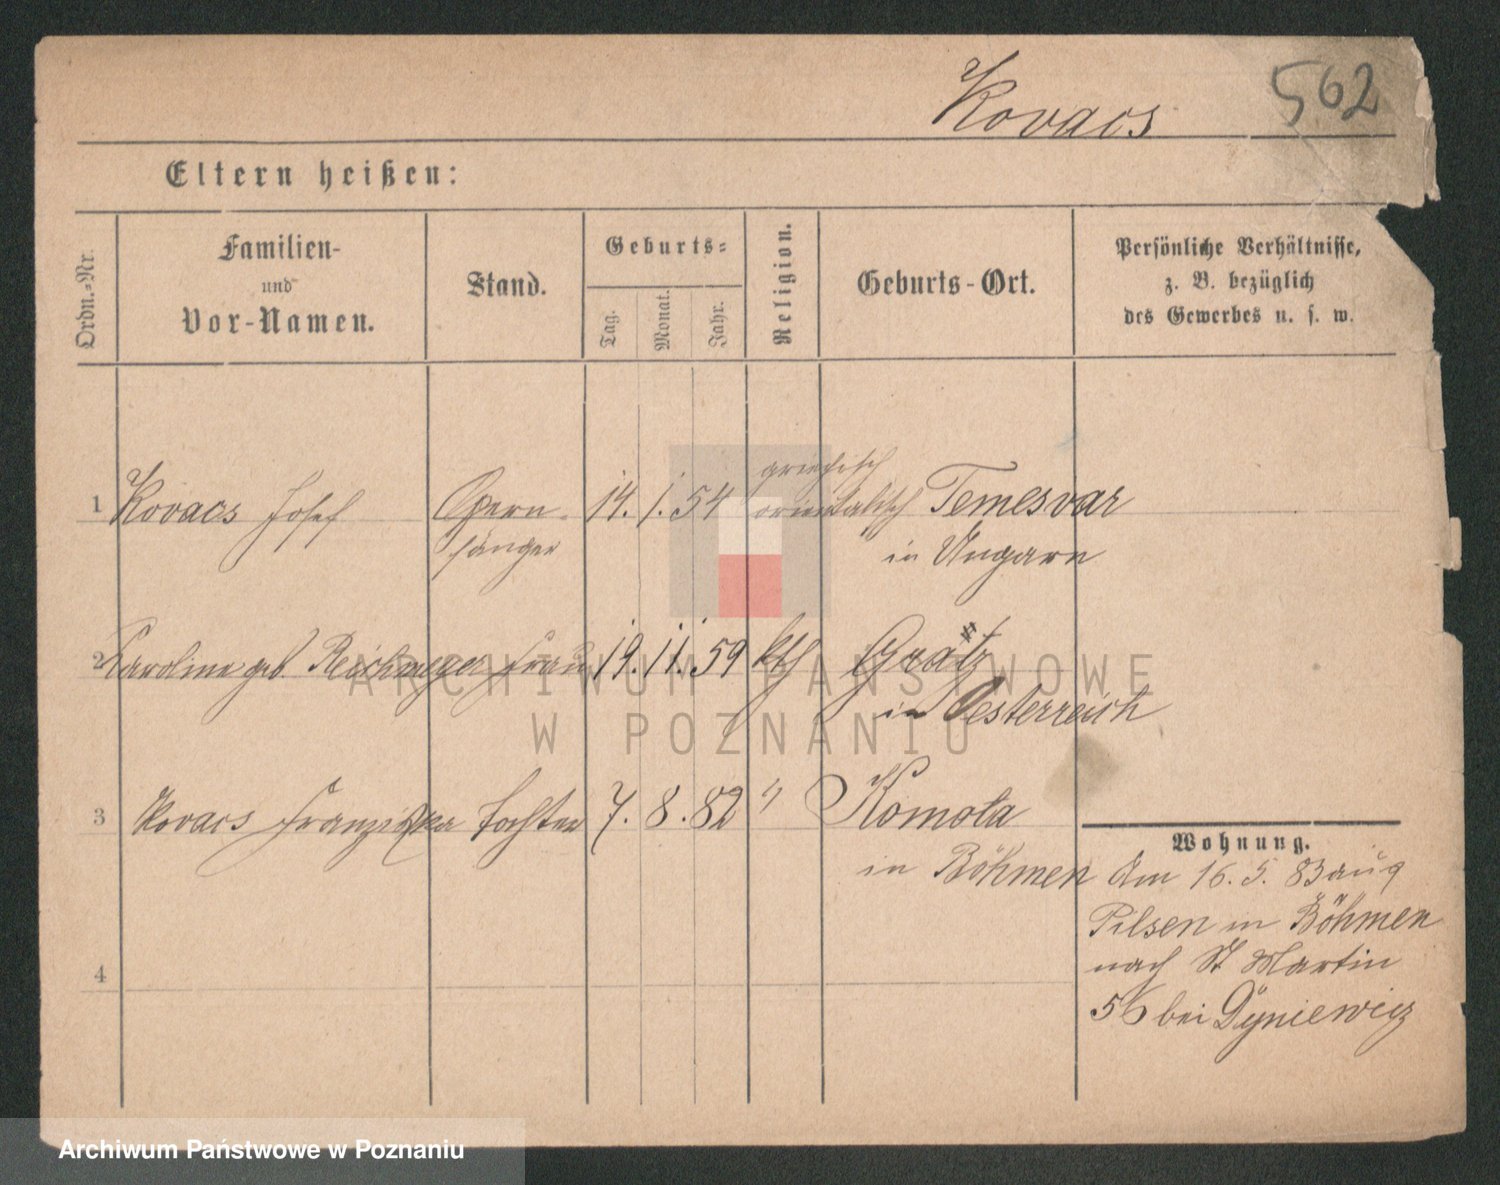 Kovacs
562
Eltern heißen:
Ordn.-Nr.
Familien-
und
Vor-Namen.
Stand.
Geburts-
Tag.
Monat.
Jahr.
Religion.
Geburts-Ort.
Persönliche Verhältnisse,
z. B. bezüglich
des Gewerbes u. s. w.
1 Kovacs Josef Opern- 14. 1. 54 griechisch orientalisch Temesvar
sänger in Ungarn
2 Caroline geb. Reichmeyer Frau 19. 11. 59 kth Grätz
in Oesterreich
3 Kovacs Franziska Tochter 7. 8. 82 " Komota
in Böhmen
4
Wohnung.
Am 16. 5. 83 aus
Pilsen in Böhmen
nach St Martin
56 bei Dyniewicz
ARCHIWUM PAŃSTWOWE
W POZNANIU
Archiwum Państwowe w Poznaniu